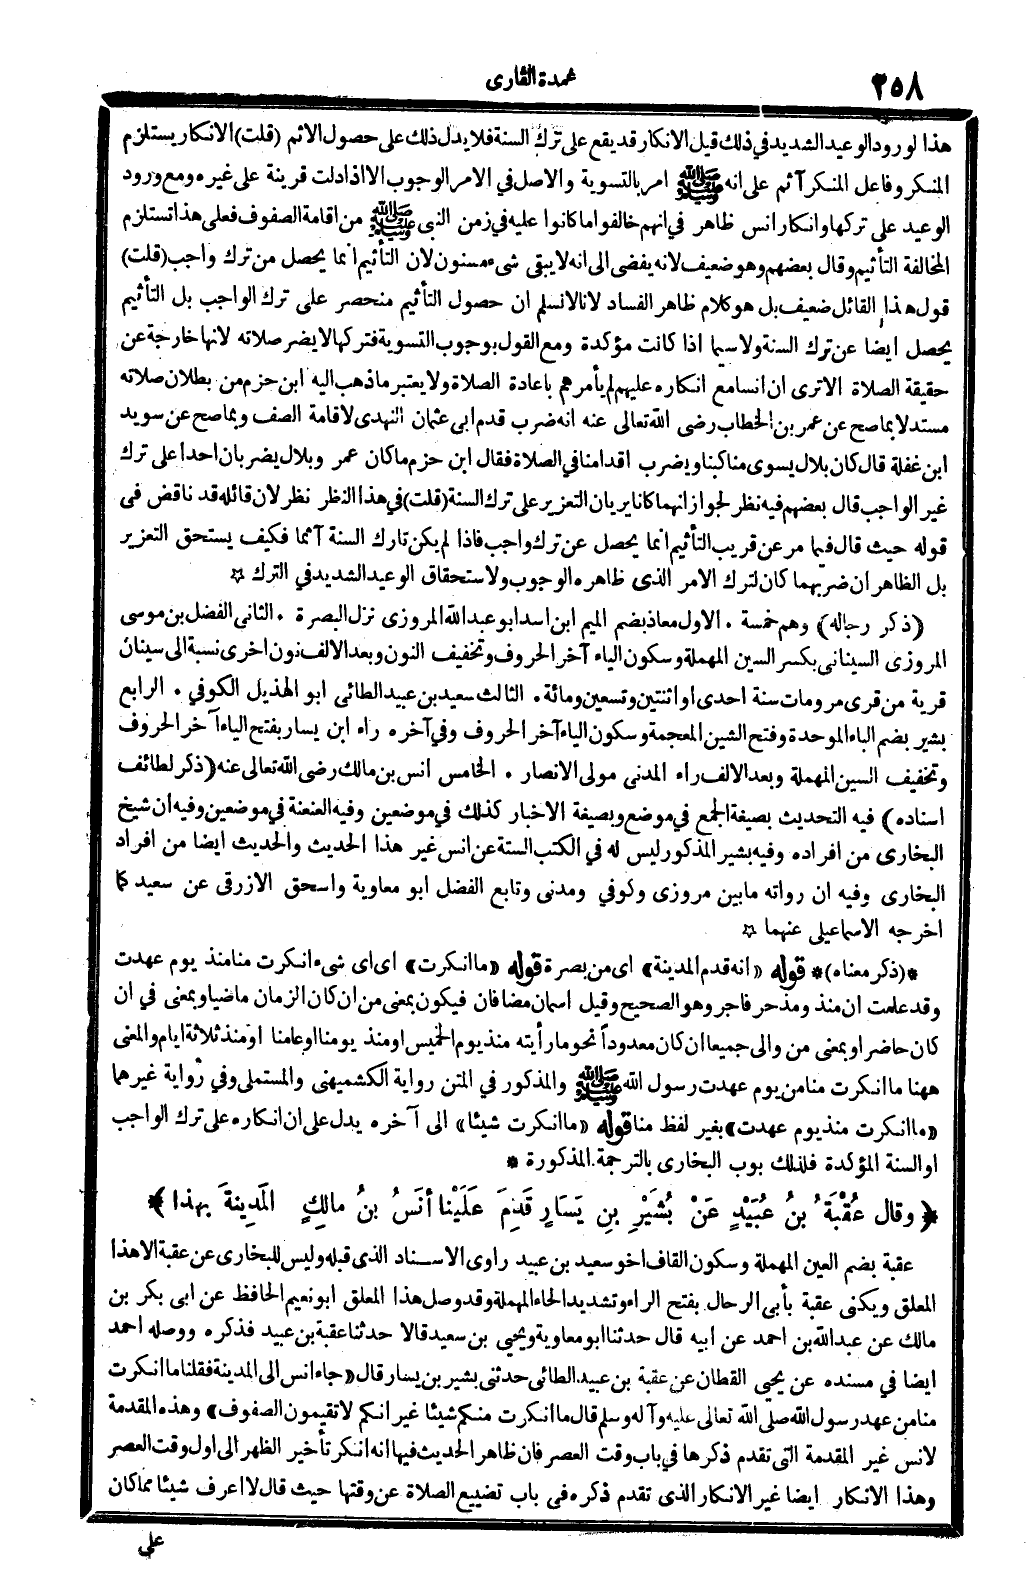 ٢٥٨
عمدة القارى
هذا لورود الوعيد الشديد في ذلك قيل الانكار قد يقع على ترك السنة فلا يدل ذلك على حصول الاثم (قلت) الانكار يستلزم
المنكر وفاعل المنكر آثم على انه ﷺ امر بالتسوية والاصل في الامر الوجوب الا اذا دلت قرينة على غيره ومع ورود
الوعيد على تركها وانكار انس ظاهر في انهم خالفوا ما كانوا عليه في زمن النبى ﷺ من اقامة الصفوف فعلى هذا تستلزم
المخالفة التأثيم وقال بعضهم وهو ضعيف لانه يفضى الى انه لا يبقى شىء مسنون لان التأثيم انما يحصل من ترك واجب (قلت)
قول هذا القائل ضعيف بل هو كلام ظاهر الفساد لانا لا نسلم ان حصول التأثيم منحصر على ترك الواجب بل التأثيم
يحصل ايضا عن ترك السنة ولا سيما اذا كانت مؤكدة ومع القول بوجوب التسوية فتركها لا يضر صلاته لانها خارجة عن
حقيقة الصلاة الا ترى ان انسا مع انكاره عليهم لم يأمرهم باعادة الصلاة ولا يعتبر ما ذهب اليه ابن حزم من بطلان صلاته
مستدلا بما صح عن عمر بن الخطاب رضى الله تعالى عنه انه ضرب قدم ابى عثمان النهدى لاقامة الصف وبما صح عن سويد
ابن غفلة قال كان بلال يسوى مناكبنا ويضرب اقدامنا في الصلاة فقال ابن حزم ما كان عمر وبلال يضربان احدا على ترك
غير الواجب قال بعضهم فيه نظر لجواز انهما كانا يريان التعزير على ترك السنة (قلت) في هذا النظر نظر لان قائله قد ناقض فى
قوله حيث قال فيما مر عن قريب التأثيم انما يحصل عن ترك واجب فاذا لم يكن تارك السنة آثما فكيف يستحق التعزير
بل الظاهر ان ضربهما كان لترك الامر الذى ظاهره الوجوب ولاستحقاق الوعيد الشديد في الترك ☆
(ذكر رجاله) وهم خمسة . الاول معاذ بضم الميم ابن اسد ابو عبد الله المروزى نزل البصرة . الثانى الفضل بن موسى
المروزى السينانى بكسر السين المهملة وسكون الياء آخر الحروف وتخفيف النون وبعد الالف نون اخرى نسبة الى سينان
قرية من قرى مرو مات سنة احدى او اثنتين وتسعين ومائة . الثالث سعيد بن عبيد الطائى ابو الهذيل الكوفي . الرابع
بشير بضم الباء الموحدة وفتح الشين المعجمة وسكون الياء آخر الحروف وفي آخره راء ابن يسار بفتح الياء آخر الحروف
وتخفيف السين المهملة وبعد الالف راء المدنى مولى الانصار . الخامس انس بن مالك رضى الله تعالى عنه (ذكر لطائف
اسناده) فيه التحديث بصيغة الجمع في موضع وبصيغة الاخبار كذلك في موضعين وفيه العنعنة في موضعين وفيه ان شيخ
البخارى من افراده وفيه بشير المذكور ليس له في الكتب الستة عن انس غير هذا الحديث والحديث ايضا من افراد
البخارى وفيه ان رواته ما بين مروزى وكوفي ومدنى وتابع الفضل ابو معاوية واسحق الازرقى عن سعيد كما
اخرجه الاسماعيلى عنهما ☆
*(ذكر معناه)* قوله «انه قدم المدينة» اى من بصرة قوله «ما انكرت» اى اى شىء انكرت منا منذ يوم عهدت
وقد علمت ان منذ ومذ حر فاجر وهو الصحيح وقيل اسمان مضافان فيكون بمعنى من ان كان الزمان ماضيا وبمعنى في ان
كان حاضرا وبمعنى من والى جميعا ان كان معدوداً نحو ما رأيته منذ يوم الخميس او منذ يومنا او عامنا او منذ ثلاثة ايام والمعنى
ههنا ما انكرت منا من يوم عهدت رسول الله ﷺ والمذكور في المتن رواية الكشميهنى والمستملى وفي رواية غيرهما
«ما انكرت منذ يوم عهدت» بغير لفظ منا قوله «ما انكرت شيئا» الى آخره يدل على ان انكاره على ترك الواجب
او السنة المؤكدة فلذلك بوب البخارى بالترجمة المذكورة *
*﴿ وقال عُقْبَةُ بنُ عُبَيْدٍ عَنْ بُشَيْرِ بنِ يَسَارٍ قَدِمَ عَلَيْنا أَنَسُ بنُ مالِكٍ المَدِينَةَ بهذا ﴾*
عقبة بضم العين المهملة وسكون القاف اخو سعيد بن عبيد راوى الاسناد الذى قبله وليس للبخارى عن عقبة الا هذا
المعلق ويكنى عقبة بأبى الرحال بفتح الراء وتشديد الحاء المهملة وقد وصل هذا المعلق ابو نعيم الحافظ عن ابى بكر بن
مالك عن عبد الله بن احمد عن ابيه قال حدثنا ابو معاوية ويحيى بن سعيد قالا حدثنا عقبة بن عبيد فذكره ووصله احمد
ايضا في مسنده عن يحيى القطان عن عقبة بن عبيد الطائى حدثنى بشير بن يسار قال «جاء انس الى المدينة فقلنا ما انكرت
منا من عهد رسول الله صلى الله تعالى عليه وآله وسلم قال ما انكرت منكم شيئا غير انكم لا تقيمون الصفوف» وهذه المقدمة
لانس غير المقدمة التى تقدم ذكرها في باب وقت العصر فان ظاهر الحديث فيها انه انكر تأخير الظهر الى اول وقت العصر
وهذا الانكار ايضا غير الانكار الذى تقدم ذكره فى باب تضييع الصلاة عن وقتها حيث قال لا اعرف شيئا مما كان
على